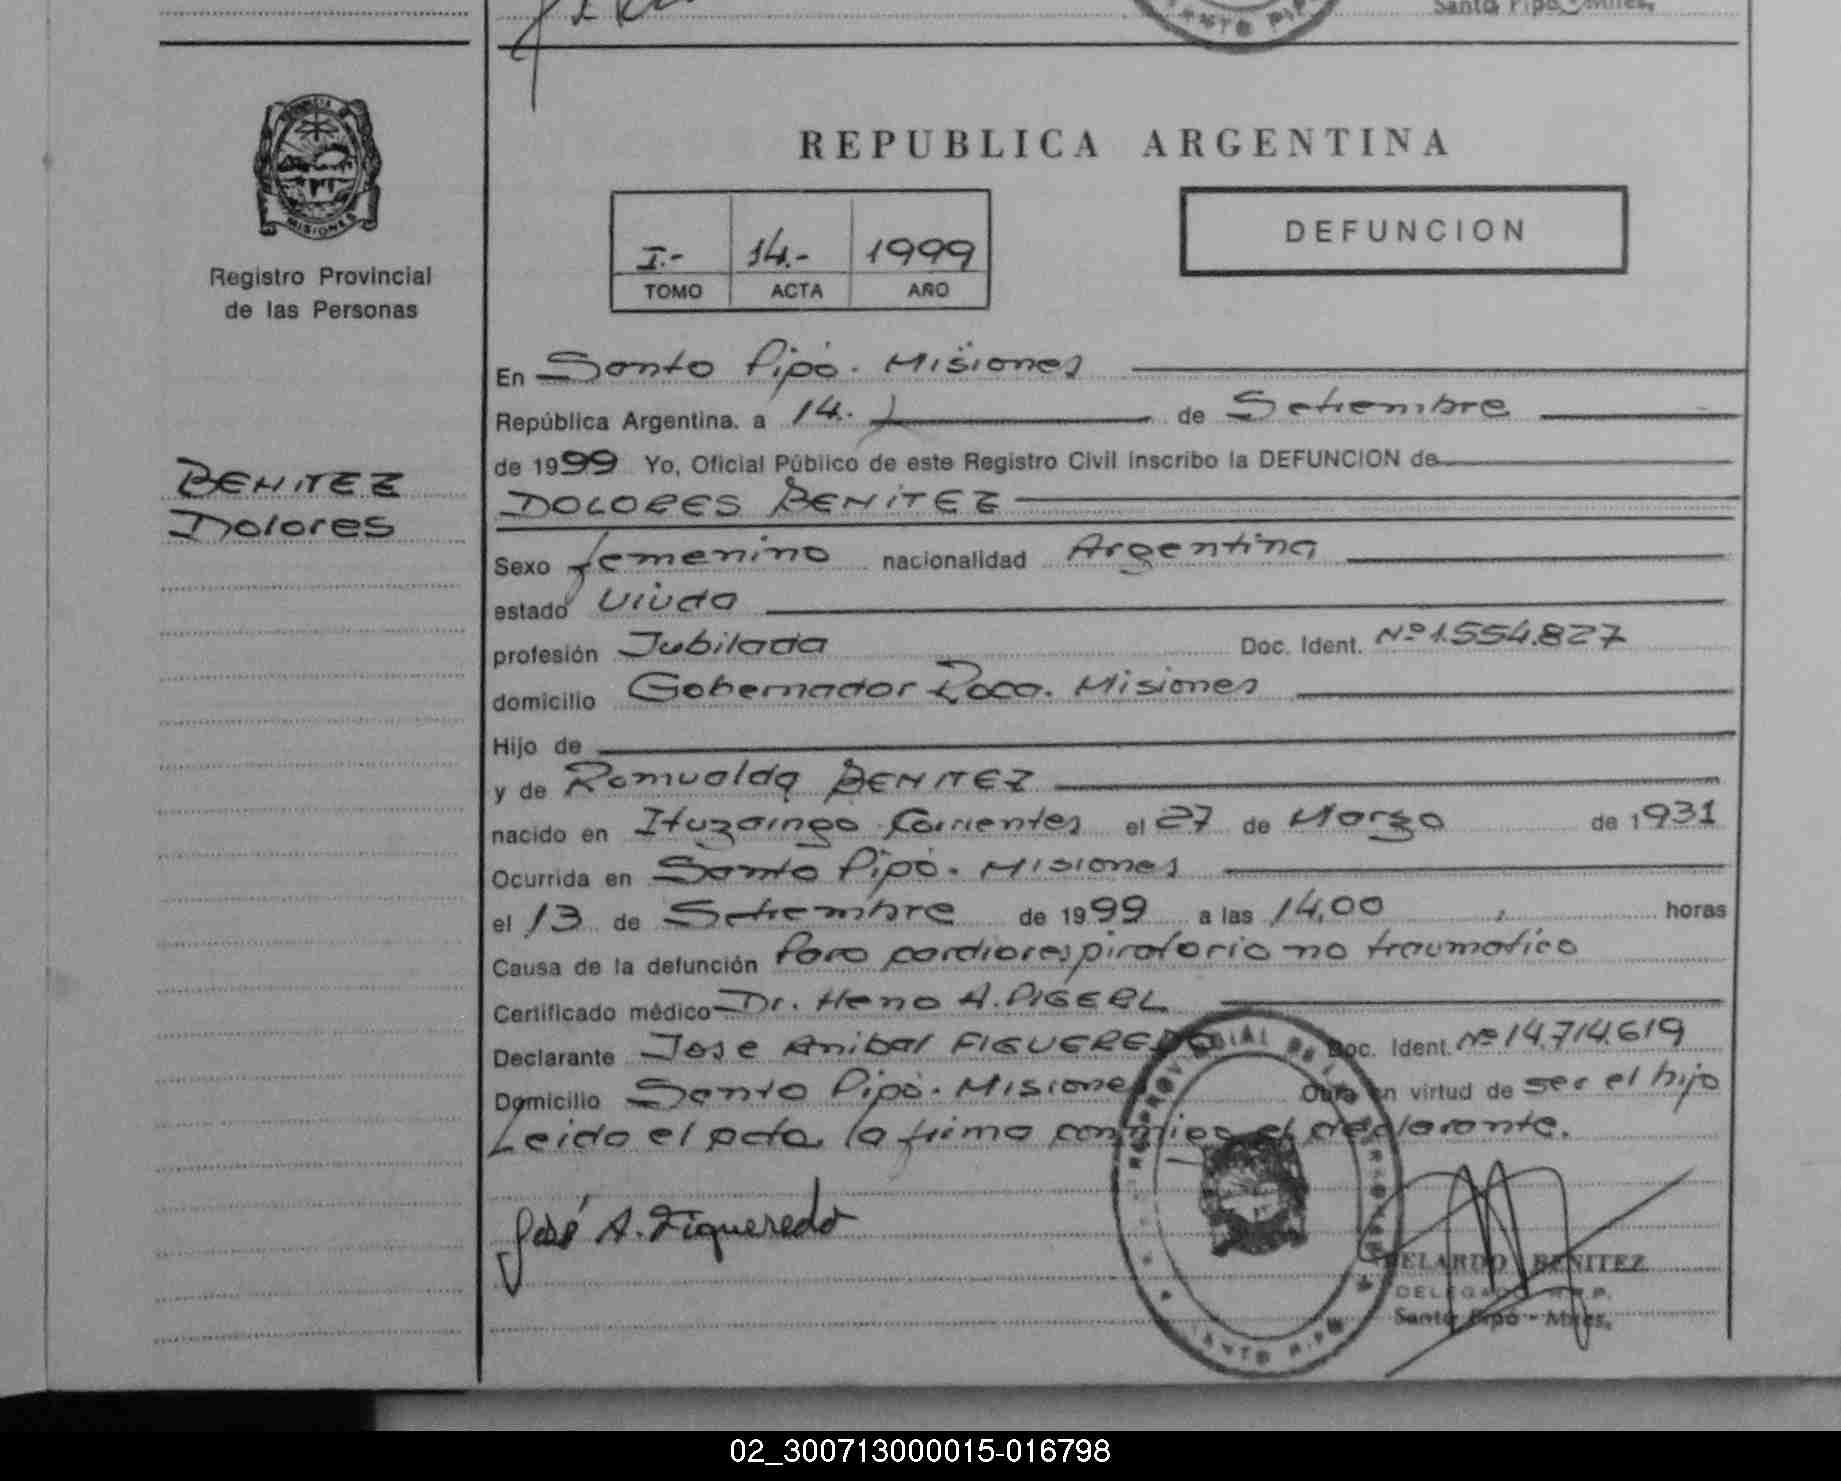 Santo Pipó - Mnes.
SANTO PIPO
PROVINCIA DE
MISIONES
Registro Provincial
de las Personas
BENITEZ
Dolores
REPUBLICA ARGENTINA
I.- 14.- 1999
TOMO ACTA AÑO
DEFUNCION
En Santo Pipó. Misiones
República Argentina. a 14. de Setiembre
de 1999 Yo, Oficial Público de este Registro Civil inscribo la DEFUNCION de
DOLORES BENITEZ
Sexo femenino nacionalidad Argentina
estado viuda
profesión Jubilada Doc. Ident. Nº 1.554.827
domicilio Gobernador Roca. Misiones
Hijo de
y de Romualda BENITEZ
nacido en Ituzaingo Corrientes el 27 de Marzo de 1931
Ocurrida en Santo Pipó. Misiones
el 13 de Setiembre de 1999 a las 14,00 horas
Causa de la defunción Paro cardiorespiratorio no traumatico
Certificado médico Dr. A.
Declarante Jose Anibal FIGUEREDO Doc. Ident. Nº 14.714.619
Domicilio Santo Pipó. Misiones Obra en virtud de ser el hijo
Leido el acta la firma conmigo el declarante.
José A. Figueredo
BENITEZ
DELEGADO R.P.P.
Santo Pipó - Mnes.
SANTO PIPO
02_300713000015-016798